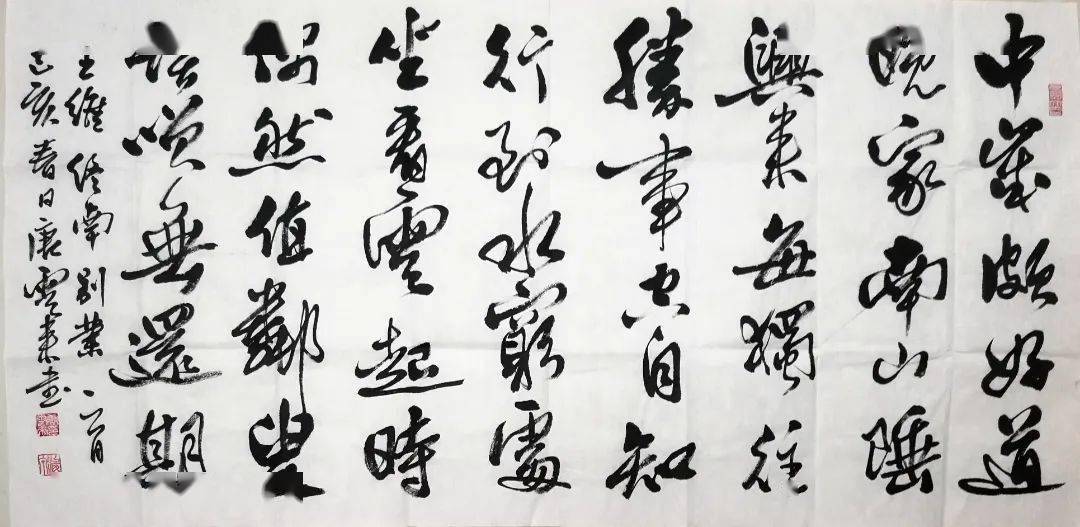 中歲頗好道
晚家南山陲
興来每獨往
勝事空自知
行到水窮處
坐看雲起時
偶然值鄰叟
談笑無還期
王維終南別業一首
己亥春日康雲来書